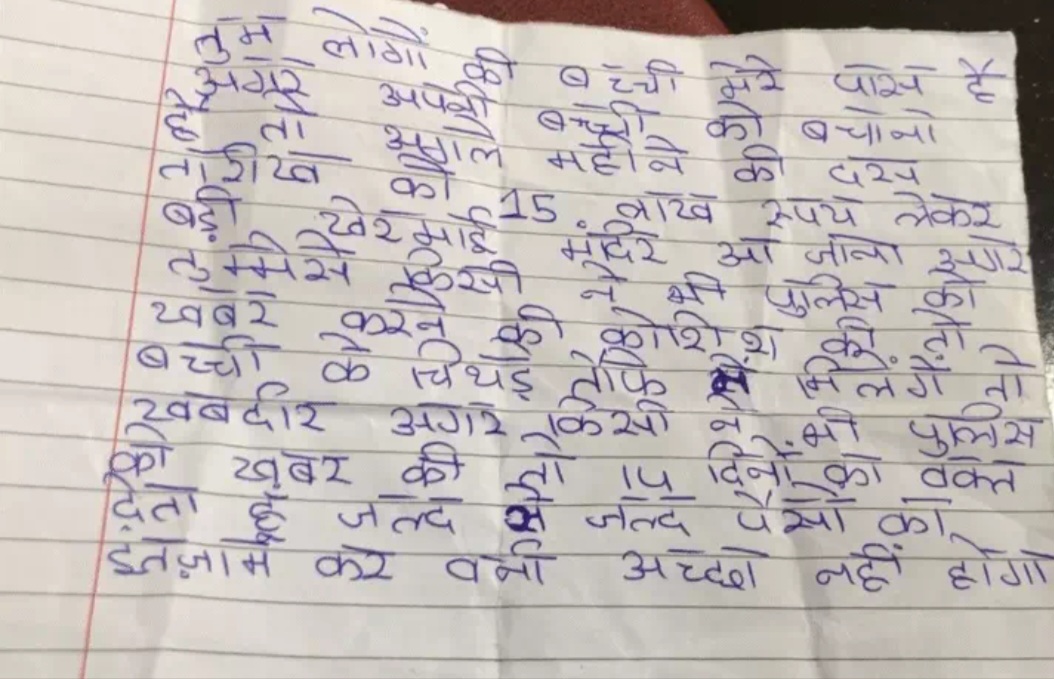 तुम लोगों की बच्ची मेरे पास है
अगर अपनी बच्ची को बचाना
है तो अगले महीने की दस
तारीख को 15 लाख रुपय लेकर
बड़ी खेरमाई मंदिर आ जाना अगर
तुममेसे किसी ने भी पुलिस को
खबर करने की कोशिश की तो
बच्ची के चिथड़े तोफे में मिलेंगे तो
खबर्दार अगर किसी ने भी पुलिस
को खबर की तो दिनों का वक्त
देता हूँ जल्द से जल्द पैसों का
इंतज़ाम कर वर्ना अच्छा नहीं होगा